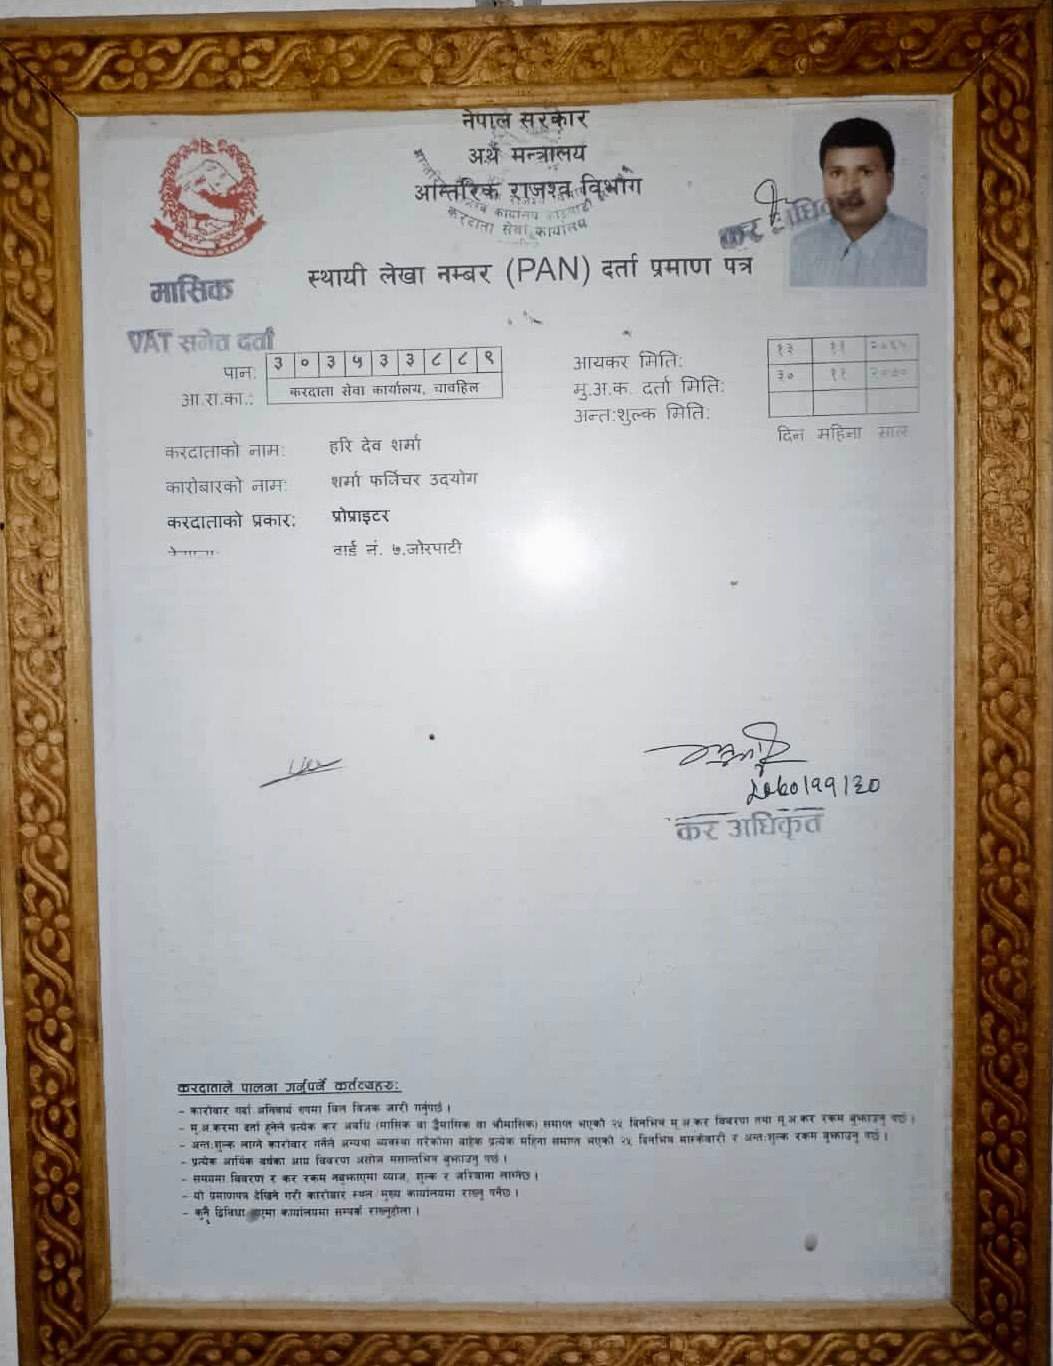 नेपाल सरकार
अर्थ मन्त्रालय
आन्तरिक राजश्व विभाग
करदाता सेवा कार्यालय
कर अधिकृत
स्थायी लेखा नम्बर (PAN) दर्ता प्रमाण पत्र
मासिक
VAT समेत दर्ता
पान: ३०३५३३८८९
आ.रा.का.: करदाता सेवा कार्यालय, चावहिल
आयकर मिति: १३ ११
मु.अ.क. दर्ता मिति: ३० ११ २०७०
अन्त:शुल्क मिति:
दिन महिना साल
करदाताको नाम: हरि देव शर्मा
कारोबारको नाम: शर्मा फर्निचर उद्योग
करदाताको प्रकार: प्रोप्राइटर
वार्ड नं. ७,जोरपाटी
२०७०।११।३०
कर अधिकृत
करदाताले पालना गर्नुपर्ने कर्तव्यहरु:
- कारोबार गर्दा अनिवार्य रुपमा बिल बिजक जारी गर्नुपर्छ ।
- मू.अ.करमा दर्ता हुनेले प्रत्येक कर अवधि (मासिक वा द्वैमासिक वा चौमासिक) समाप्त भएको २५ दिनभित्र मू.अ.कर विवरण तथा मू.अ.कर रकम बुझाउनु पर्छ ।
- अन्त:शुल्क लाग्ने कारोबार गर्नेले अन्यथा व्यवस्था गरेकोमा बाहेक प्रत्येक महिना समाप्त भएको २५ दिनभित्र मास्केवारी र अन्त:शुल्क रकम बुझाउनु पर्छ ।
- प्रत्येक आर्थिक वर्षको आय विवरण असोज मसान्तभित्र बुझाउनु पर्छ ।
- समयमा विवरण र कर रकम नबुझाएमा ब्याज, शुल्क र जरिवाना लाग्नेछ ।
- यो प्रमाणपत्र देखिने गरी कारोबार स्थल/मुख्य कार्यालयमा राख्नु पर्नेछ ।
- कुनै द्विविधा भएमा कार्यालयमा सम्पर्क राख्नुहोला ।